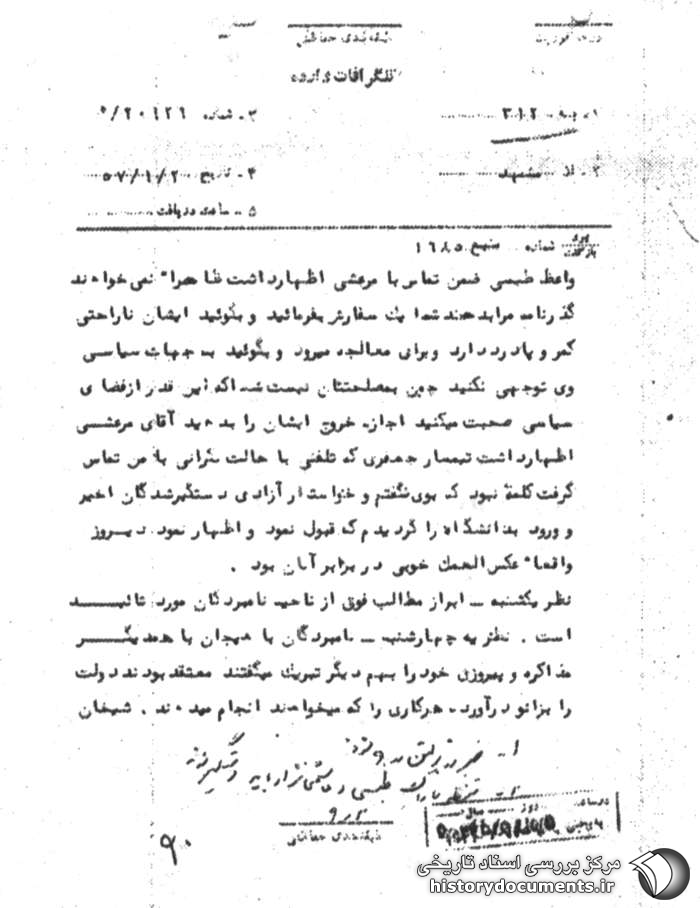 طبقه‌بندی حفاظتی
تلگرافات وارده
۱- به ۳۱۲
۳- شماره ۹/۲۰۱۲۱
۲- از مشهد
۴- تاریخ ۵۷/۱۰/۲۰
۵- ساعت دریافت
شماره منبع ۱۶۸۵
واعظ طبسی ضمن تماس با مرعشی اظهارداشت ظاهرا" نمی‌خواهند
گذرنامه مرا بدهند شما یك سفارش بفرمائید و بگوئید ایشان ناراحتی
کمر و پادرد دارد و برای معالجه میرود و بگوئید به جهات سیاسی
وی توجهی نکنید چون بمصلحتتان نیست شما که این قدر از فضای
سیاسی صحبت میکنید اجازه خروج ایشان را بدهید آقای مرعشی
اظهارداشت تیمسار جعفری که تلفنی با حالت نگرانی با من تماس
گرفت کلمهٔ نبود که بوی نگفتم و خواستار آزادی دستگیرشدگان اخیر
و ورود بدانشگاه را گردیدم که قبول نمود و اظهار نمود دیروز
واقعا" عکس‌العمل خوبی در برابر آنان بود .
نظر یکشنبه ـ ابراز مطالب فوق از ناحیه نامبردگان مورد تائیـد
است . نظریه چهارشنبه ـ نامبردگان با هیجان با همدیگـر
مذاکره و پیروزی خود را بهم دیگر تبریك میگفتند معتقد بودند دولت
را بزانو درآورده هرکاری را که میخواهند انجام میدهند . شیخان
طبقه‌بندی حفاظتی
۹۰
مرکز بررسی اسناد تاریخی
historydocuments.ir